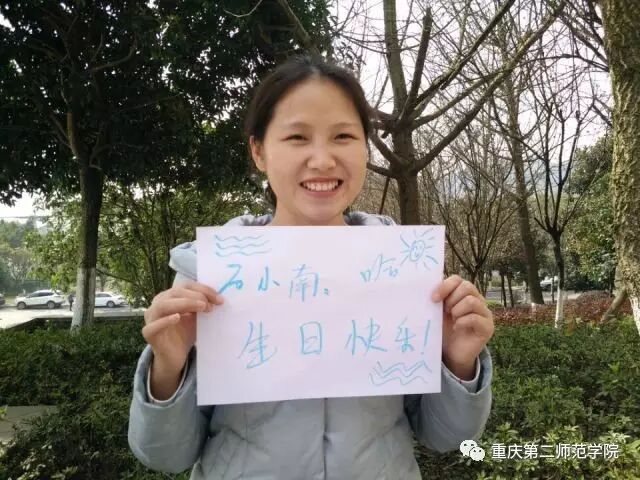 石小南、哈
生日快乐!
重庆第二师范学院